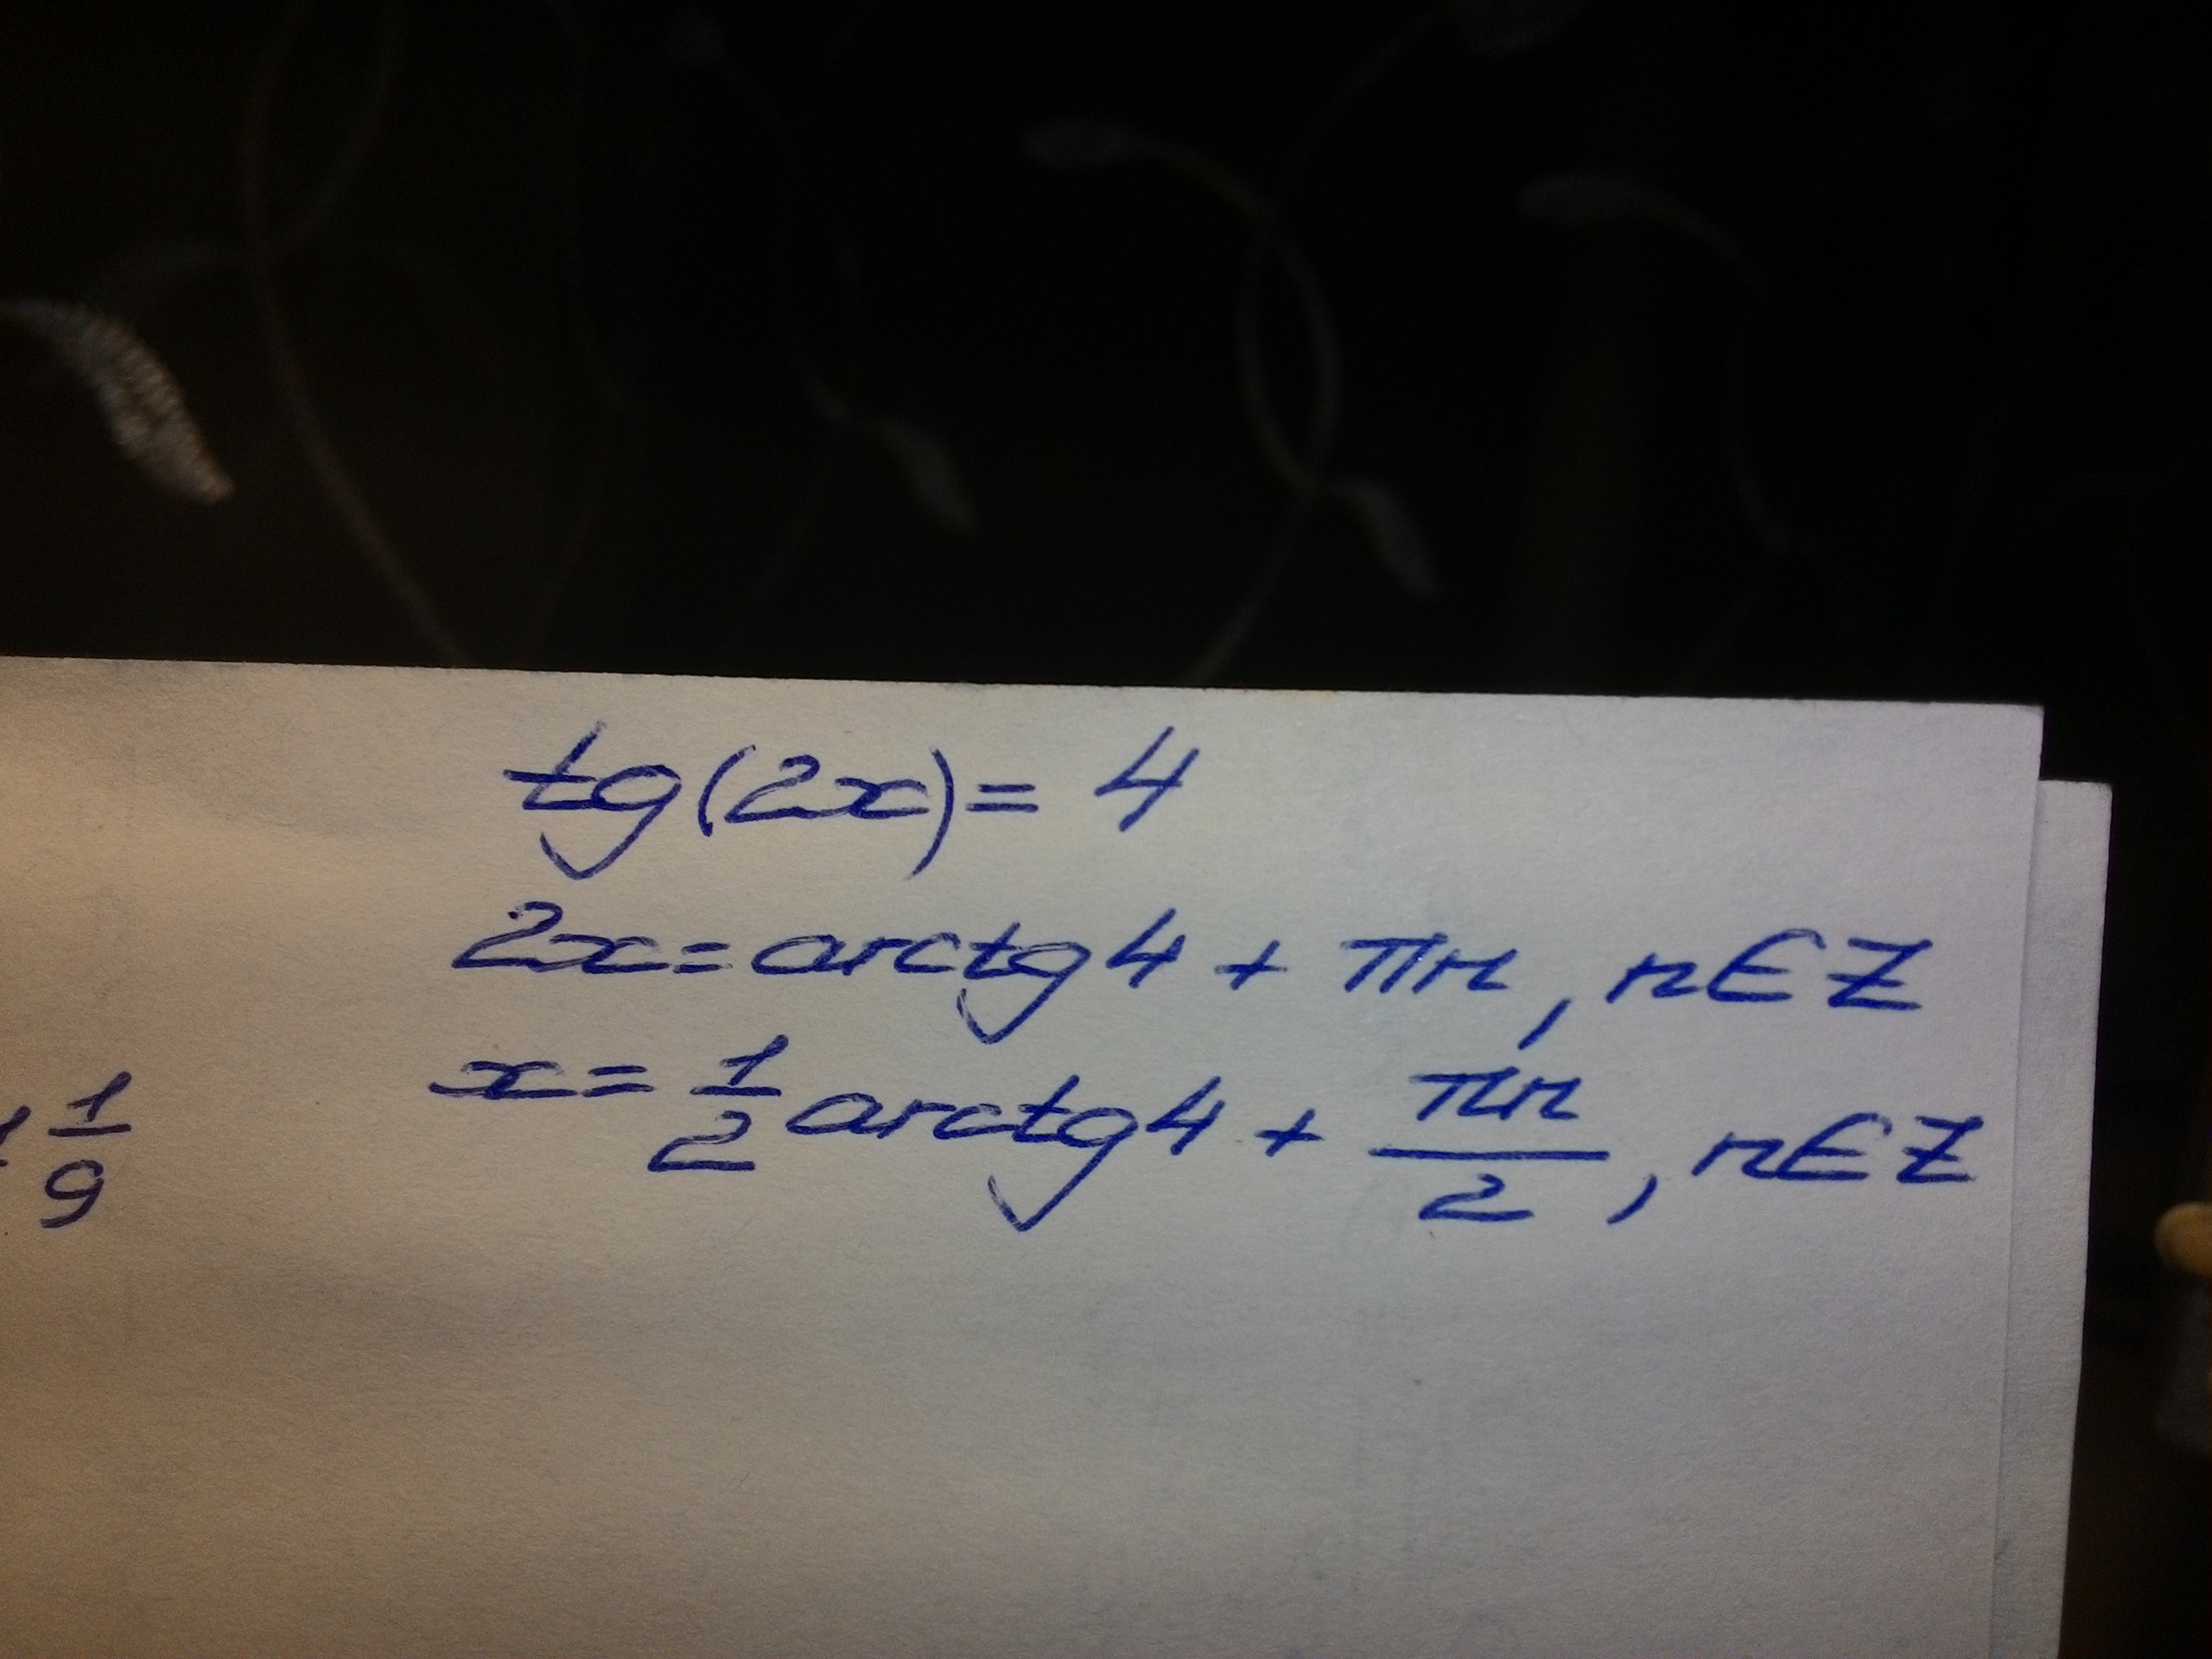 tg(2x) = 4
2x = arctg4 + πn, n∈Z
x = 1/2 arctg4 + πn/2, n∈Z
1/9